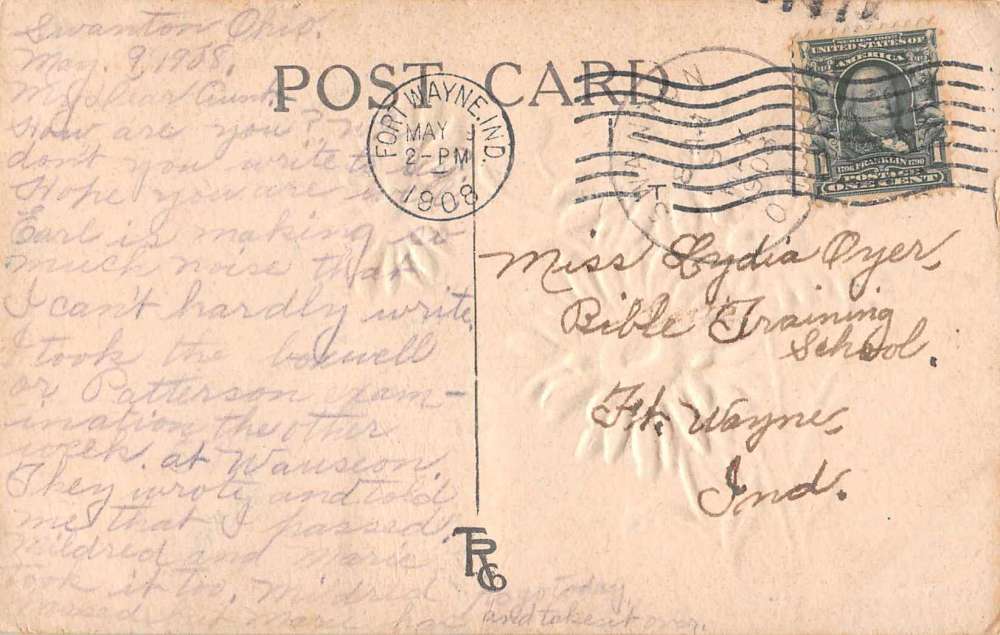 Swanton Ohio.
May. 9, 1908.
My dear Aunt:
How are you?
don't you write to
Hope you are
Earl is making so
much noise than
I can't hardly write.
I took the boxwell
or Patterson exam-
ination the other
week. at Wauseon.
They wrote and told
me that I passed.
Mildred and Marie
took it too. Mildred
passed but Marie has
to go Today
and take it over.
POST CARD
FORT WAYNE, IND.
MAY
2-PM
1908
SERIES 1902
UNITED STATES OF
AMERICA
1706 FRANKLIN 1790
POSTAGE
1 ONE CENT 1
Miss Lydia Oyer,
Bible Training
School.
Ft. Wayne,
Ind.
TRCo